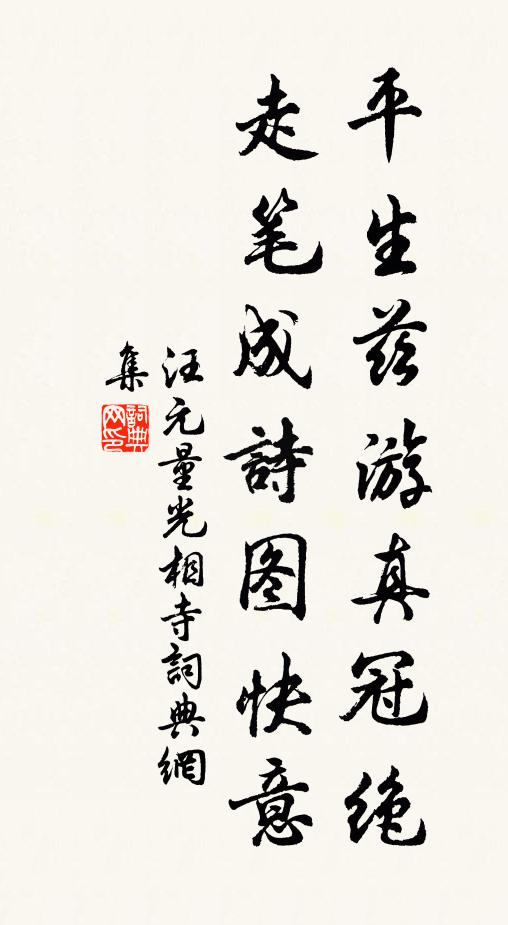 平生兹游真冠绝
走笔成詩图快意
汪元量光相寺詞典網
集
詞典网印